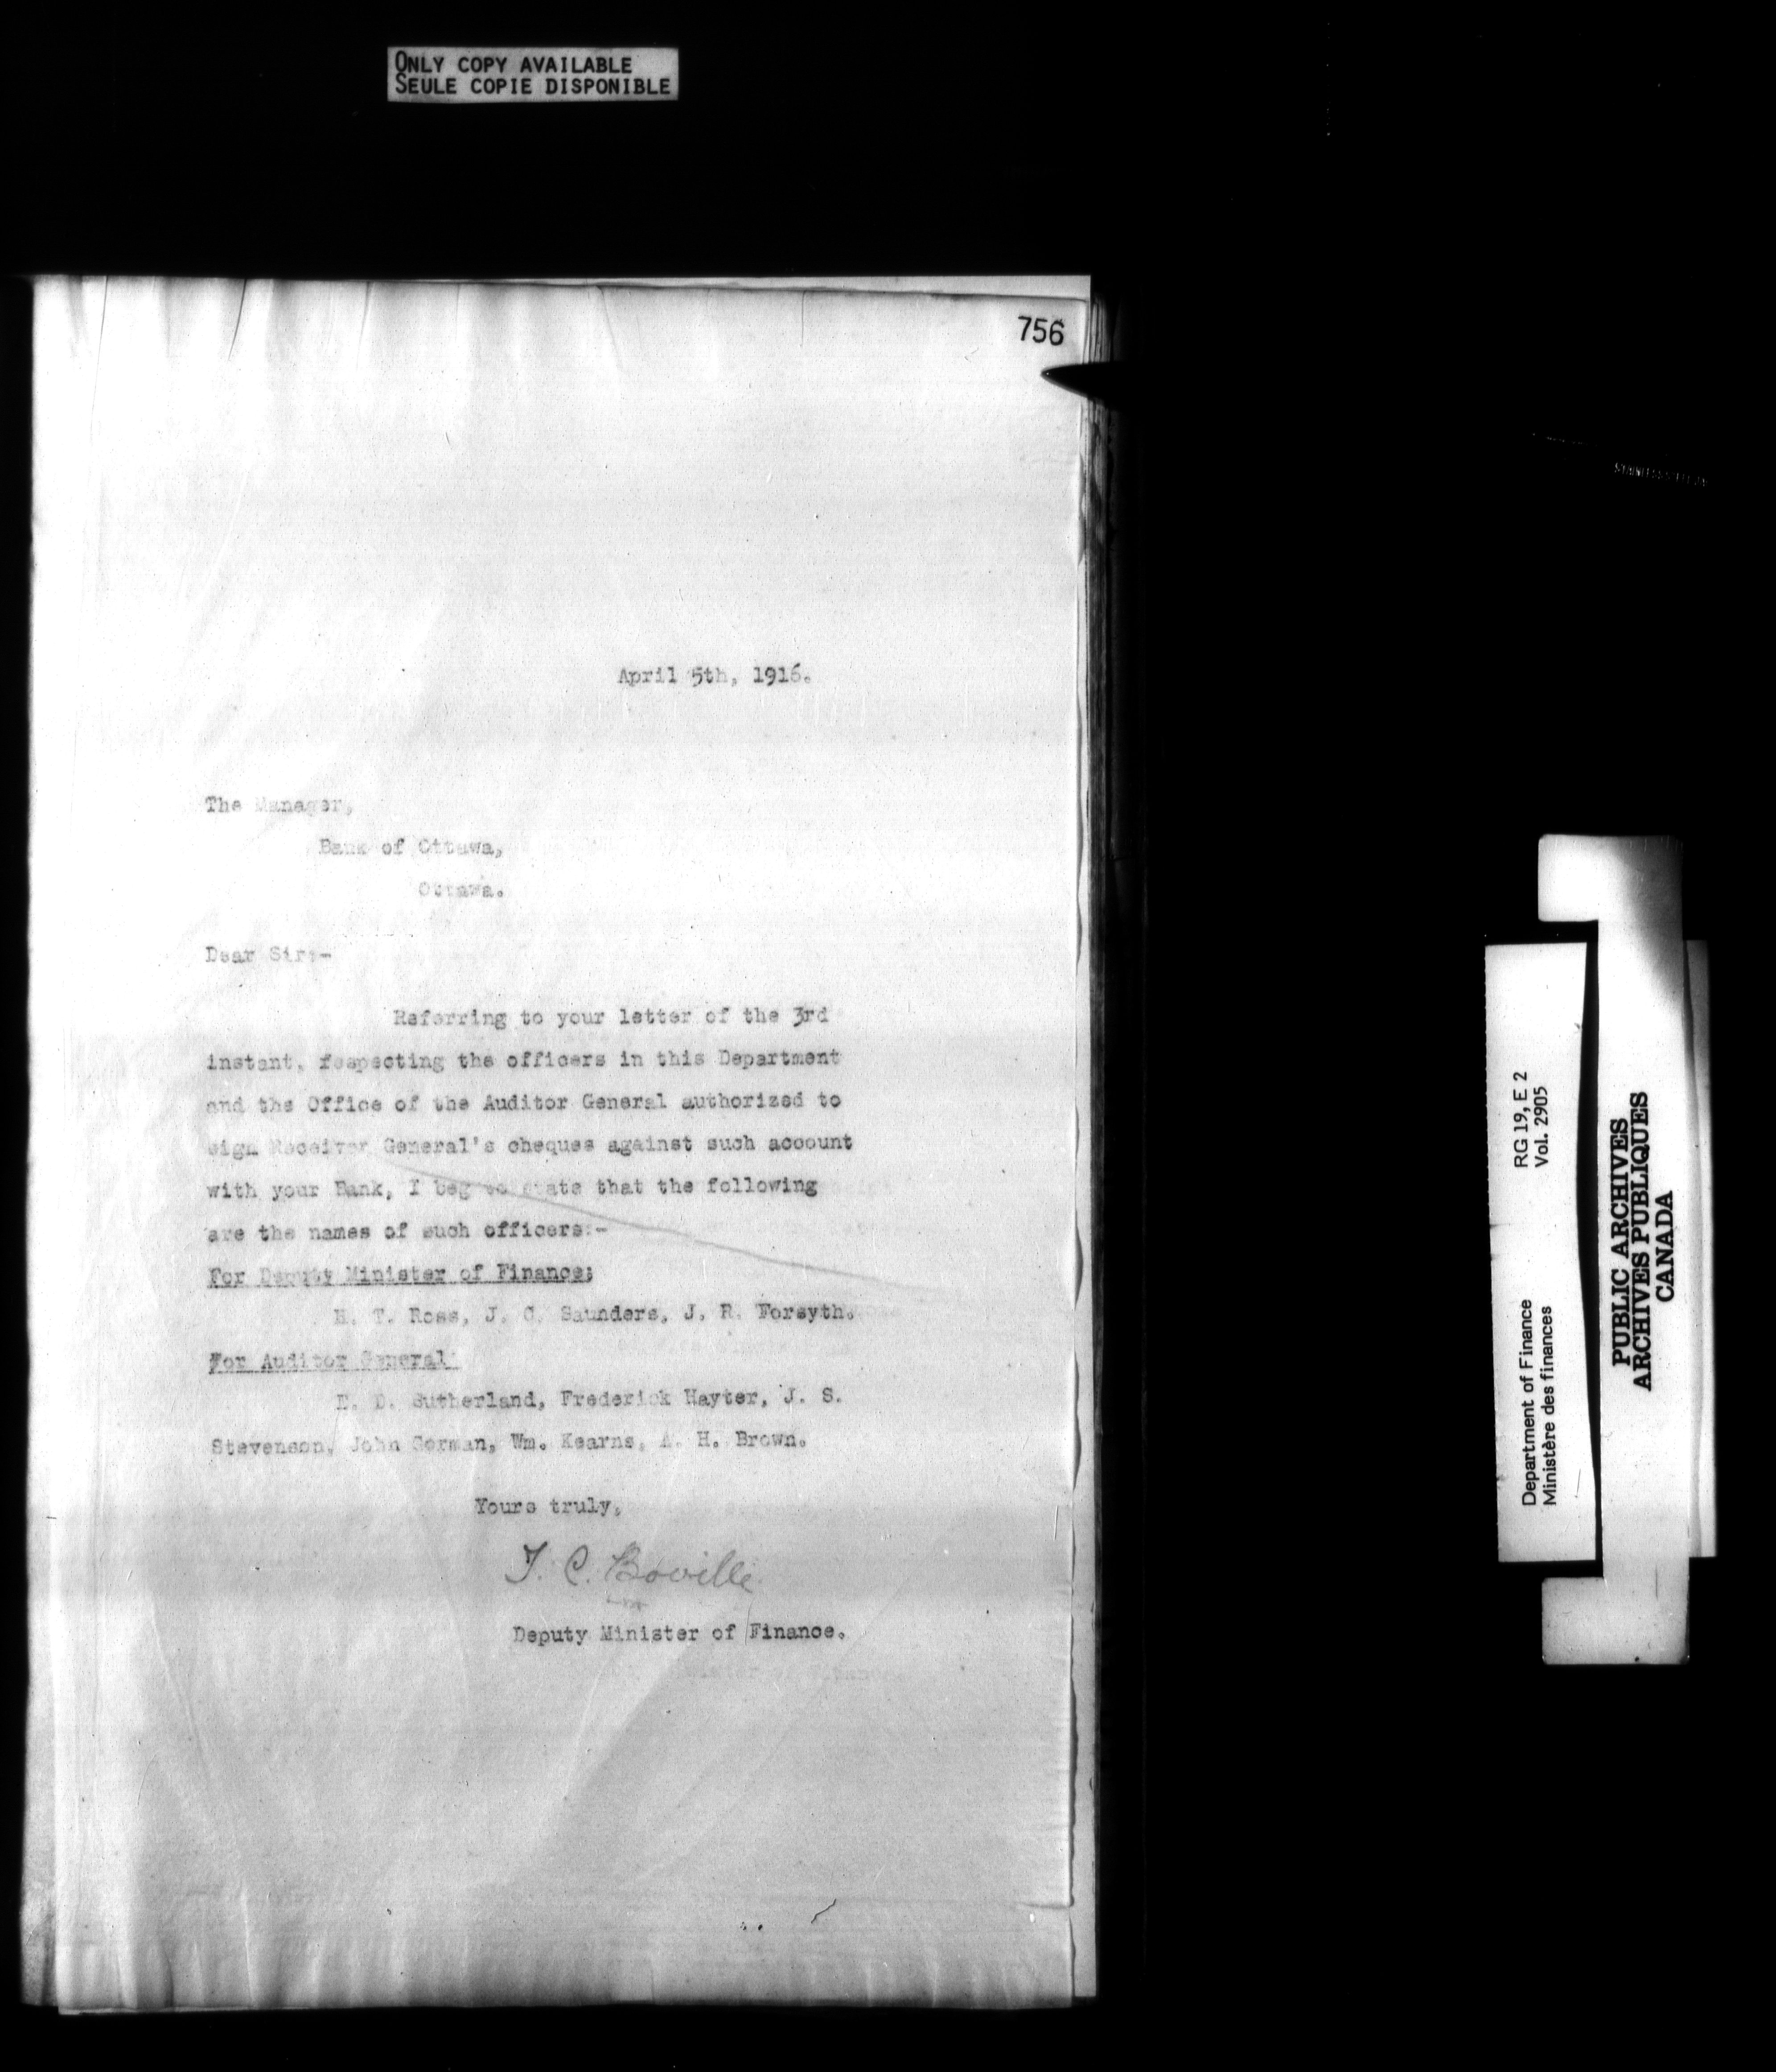 ONLY COPY AVAILABLE
SEULE COPIE DISPONIBLE
756
April 5th, 1916.
The Manager,
Bank of Ottawa,
Ottawa.
Dear Sir:-
Referring to your letter of the 3rd
instant, respecting the officers in this Department
and the Office of the Auditor General authorized to
sign Receiver General's cheques against such account
with your Bank, I beg to state that the following
are the names of such officers:-
For Deputy Minister of Finance:
H. T. Ross, J. C. Saunders, J. R. Forsyth.
For Auditor General
E. D. Sutherland, Frederick Hayter, J. S.
Stevenson, John Gorman, Wm. Kearns, A. H. Brown.
Yours truly,
T. C. Boville
Deputy Minister of Finance.
Department of Finance RG 19, E 2
Ministère des finances Vol. 2905
PUBLIC ARCHIVES
ARCHIVES PUBLIQUES
CANADA